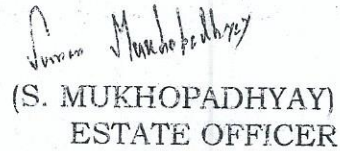 Suman Mukhopadhyay
(S. MUKHOPADHYAY)
ESTATE OFFICER